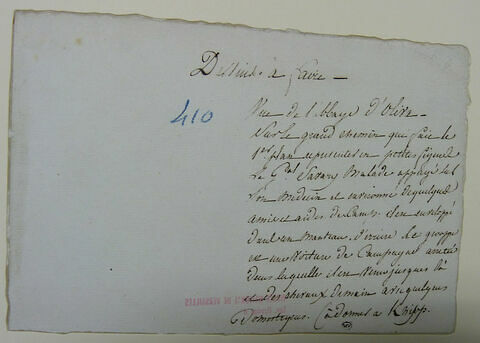 Dessins à faire —
410
Vue de l'Abbaye d'Oliva.
Sur le grand chemin qui fait le
1er plan representer en petites figures
Le Gal Savary Malade appuyé sur
son Medecin et environné de quelques
amis et aides de Camp. il est enveloppé
dans un Manteau. derriere le grouppe
est une Voiture de Campagne arretée
dans laquelle il est venu jusques là
et des chevaux de main avec quelques
Domestiques. Donner à